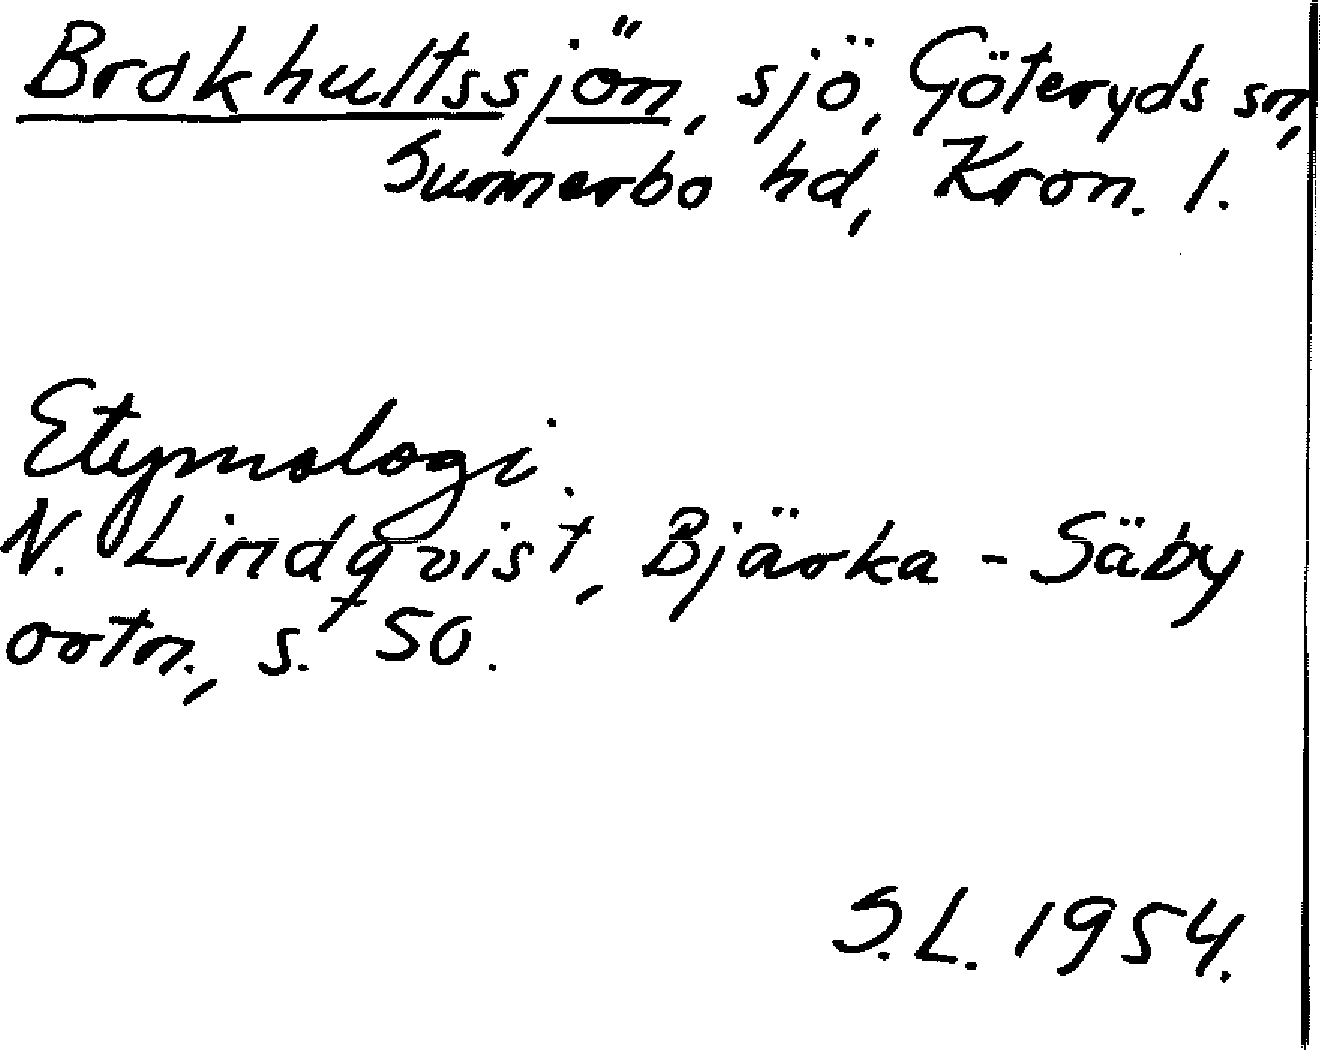 Brokhultssjön, sjö, Göteryds sn,
Sunnerbo hd, Kron. l.
Etymologi.
N. Lindqvist, Bjärka-Säby
ortn., s. 50.
S.L. 1954.